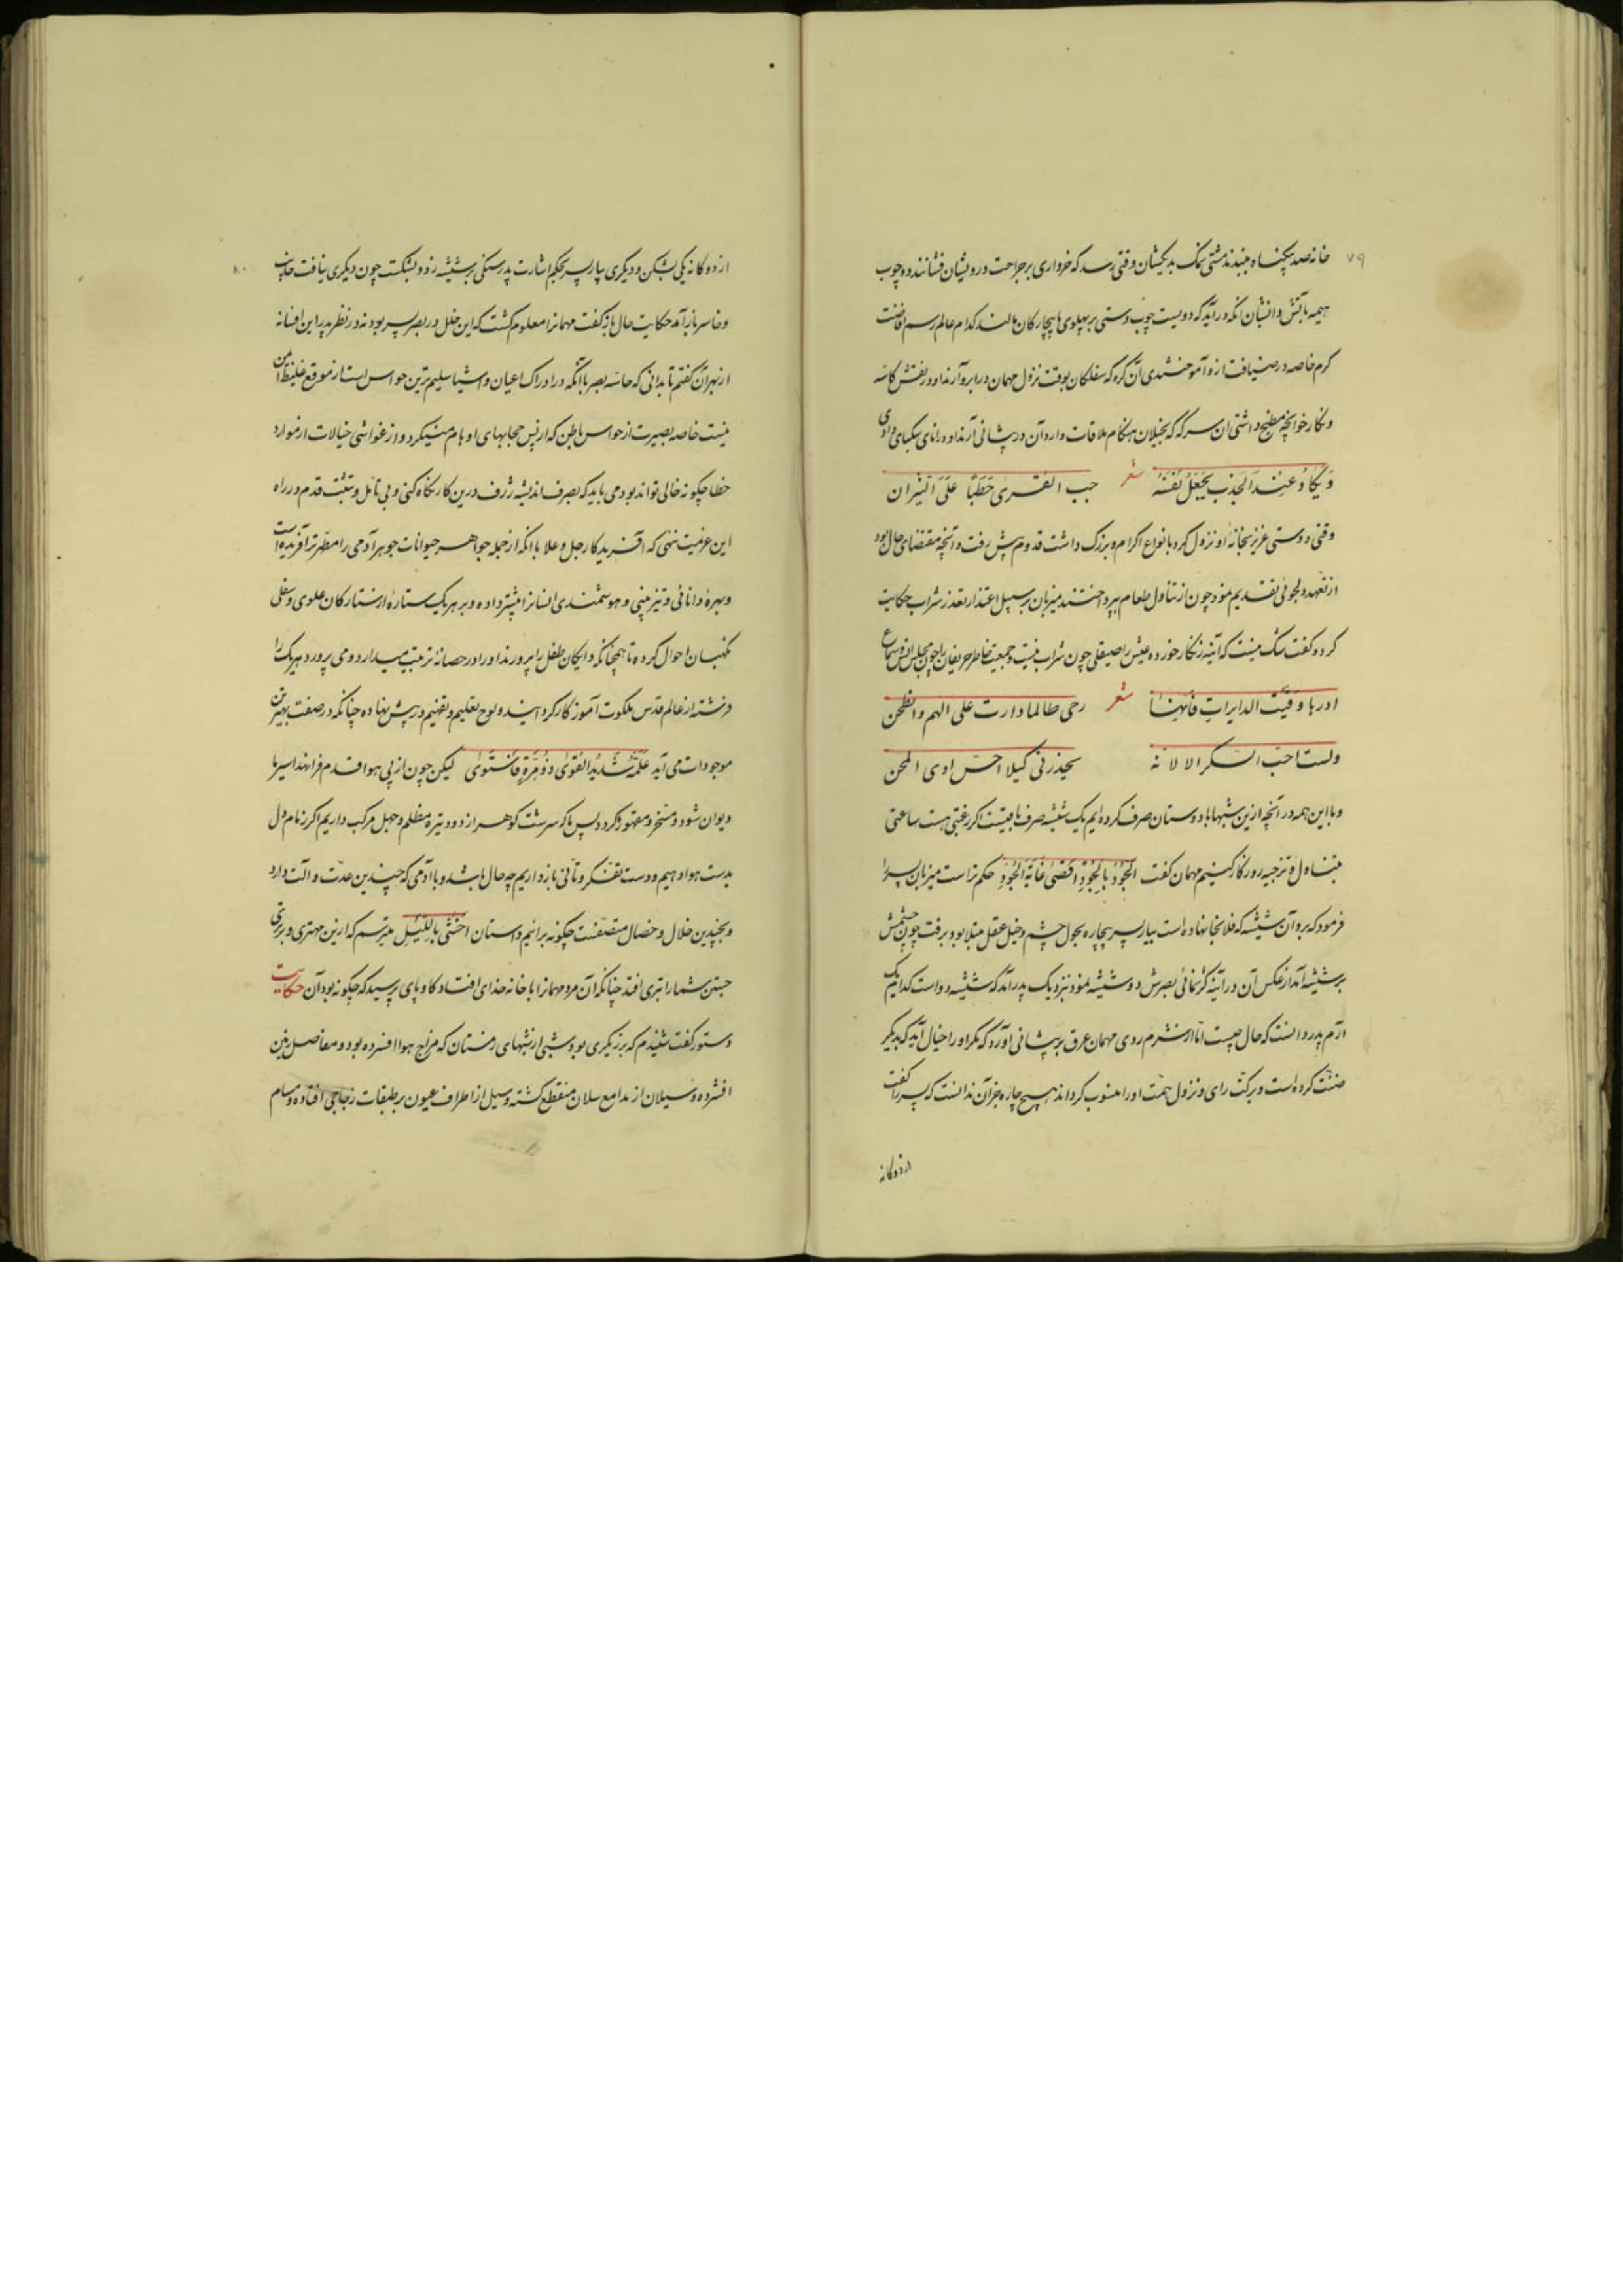 ۷۹
خانه صد بیگناه ببندند مشتی نمک بدیگشان وقتی رسد که خرواری بر جراحت درویشان فشانند دو چوب
هیمه بآتش دانشان آنگه درآید که دویست چوب دستی بر پهلوی بیچارگان مالند کدام عالم رسم افاضت
کرم خاصه در ضیافت ازو آموختندی آن گره که سفلگان بوقت نزول مهمان در ابرو آرند او در نقش کاسه
و نگار خوانچه مطبخ داشتی آن سرکه که بخیلان هنگام ملاقات واردان در پیشانی آرند او در انای سکبای دادی
وَیَکادُ عِندَ الجَذبِ یَجعَلُ نَفسَهُ شعر حب القری حَطَبًا عَلَی النّیران
وقتی دوستی عزیز بخانهٔ او نزول کرد بانواع اکرام و بزرگ داشت قدوم پیش رفت و آنچه مقتضای حال بود
از تعهد و دلجوئی تقدیم نمود چون از تناول طعام بپرداختند میزبان بر سبیل اعتذار از تعذر شراب حکایت
کرد و گفت شک نیست که آینه زنگار خورده عیش را صیقلی چون شراب نیست و جمعیت خاطر حریفان را چون مجلس انس و سماع
ادرها وَقَیتَ الدایرات فانها شعر رحی طالما دارت علی الهم والحزن
ولست احب السکر الا لانه یخدرنی کیلا احس اذی المحن
و با این همه در آنچه ازین شبها با دوستان صرف کرده‌ایم یک شیشه صرف باقیست اگر رغبتی هست ساعتی
بتناول و تزجیه روزگار کنیم مهمان گفت اَلجُودُ بِالمَوجُودِ اَقصَی غایَةِ الجُودِ حکم تراست میزبان پسر را
فرمود که برو آن شیشه که فلانجا نهاده است بیار پسر بیچاره بحول چشم و خبل عقل مبتلا بود برفت چون چشمش
بر شیشه آمد از عکس آن در آینه کژنمائی بصرش دو شیشه نمود بنزدیک پدر آمد که شیشه دو است کدام یک
آرم پدر دانست که حال چیست اما از شرم روی مهمان عرق بر پیشانی آورد که مگر او را خیال آید که بدیگر
ضنت کرده است و برکت رای و نزول همت او را منسوب گرداند هیچ چاره جز آن ندانست که پسر را گفت
ازدوگانه
۸۰
از دوگانه یکی بشکن و دیگری بیار پسر بحکم اشارت پدر سنگی بر شیشه زد و بشکست چون دیگری نیافت خایب
و خاسر باز آمد حکایت حال باز گفت مهمانرا معلوم گشت که این خلل در بصر پسر بود نه در نظر پدر این افسانه
از بهر آن گفتم تا بدانی که حاسه بصر با آنکه در ادراک اعیان و اشیا سلیم ترین حواس است از موقع غلیظ آمن
نیست خاصه بصیرت از حواس باطن که از پس حجابهای اوهام مینگرد و از غواشی خیالات از موارد
خطا چگونه خالی تواند بود می باید که بصرف اندیشه ژرف درین کار نگاه کنی و بی تامل و تثبت قدم در راه
این عزمیت ننهی که آفریدگار جل و علا با آنکه از جمله جواهر حیوانات جوهر آدمی را مطهرتر آفریده است
و بهرهٔ دانائی و تیز بینی و هوشمندی انسانرا بیشتر داده و بر هر یک ستاره از ستارگان علوی و سفلی
نگهبان احوال کرده تا همچنانکه دایگان طفل را پرورند او را در حضانه تربیت میدارد و می پرورد هر یک را
فرشته از عالم قدس ملکوت آموزگار کردانیده و لوح تعلیم و تفهیم در پیش نهاده چنانکه در صفت بهترین
موجودات می آید عَلَّمَهُ شَدیدُ القُوی ذُو مِرَّةٍ فَاستَوی لیکن چون از پی هوا قدم فرا نهند اسیر ما
دیوان شود و مسخر و مقهور گردد پس ما که سرشت گوهر از دود تیره مظلم و جهل مرکب داریم اگر زمام دل
بدست هوا دهیم و دست تفکر و تأنی باز داریم چه حال باشد و با آدمی که چندین عدت و آلت دارد
و بچندین خلال و خصال متصفست چگونه برآئیم داستان اخشی بِاللَّیلِ میترسم که ازین مهتری و برتری
جستن شما را بتری افتد چنانکه آن مرد مهمانرا با خانه خدای افتاد گاوپای پرسید که چگونه بود آن حکایت
دستور گفت شنیدم که برزیگری بود شبی از شبهای زمستان که مزاج هوا افسرده بود و مفاصل زمین
افشرده و سیلان از مدامع سلان منقطع گشته و سیل از اطراف عیون بر طبقات زجاجی افتاده و مسام